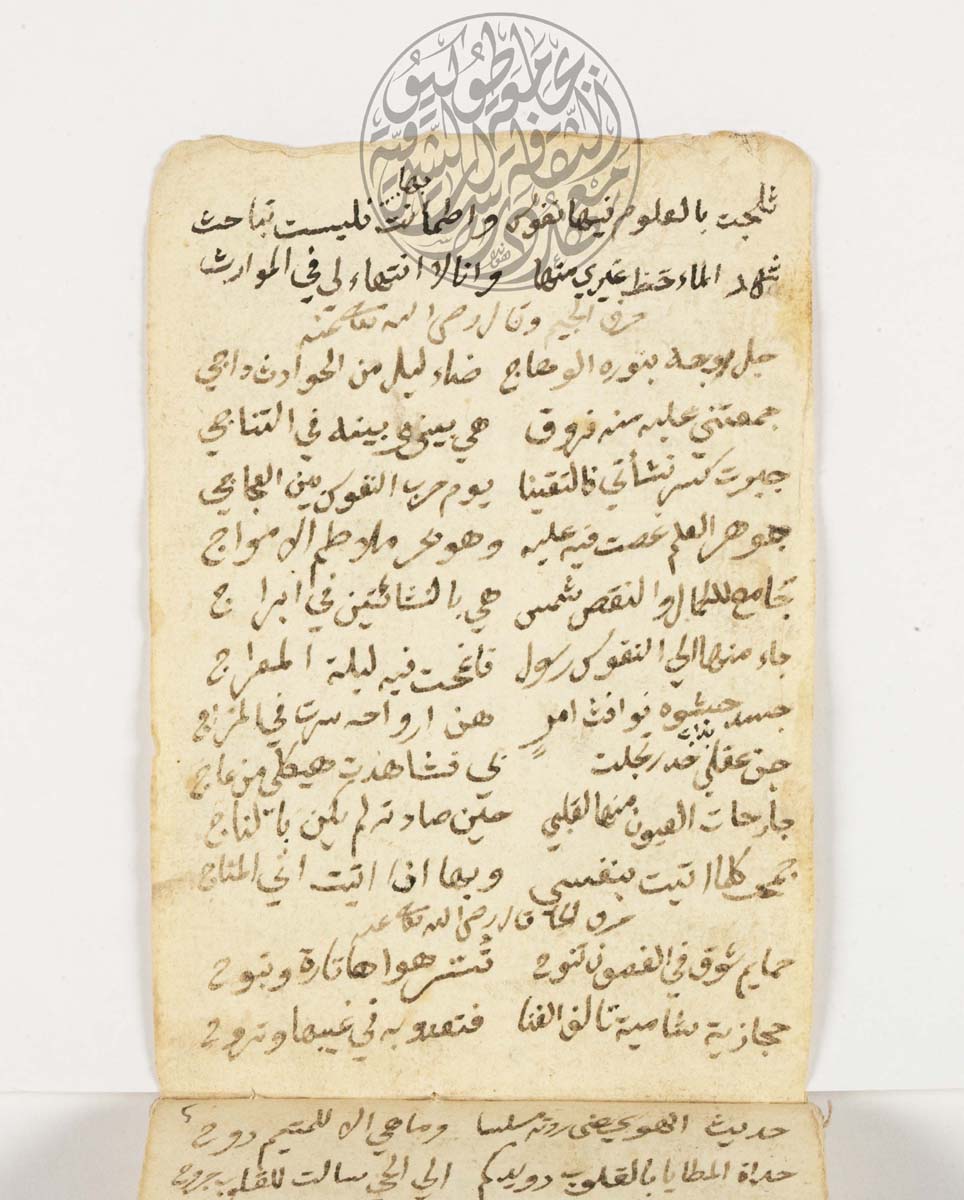 بها
ثلجت بالعلوم فيها نفوس واطمانت فليست تباحث
شهد الماء حظ غيري منها وانا لا انتهاء لي في الموارث
حرف الجيم وقال رضي الله تعالى عنه
جل وجه بنوره الوهاج ضاء ليل من الحوادث داجي
جمعتني عليه منه فروق هي بيني وبينه في التناجي
جبرت كسر نشأتي فالتقينا يوم حرب النفوس بين العجاج
جوهر العلم غصت فيه عليه وهو بحر ملاطم الامواج
جامع للكمال والنقص شمس هي بالنشأتين في ابراج
جاء منها الي النفوس رسول فانمحت فيه ليلة المعراج
جسد حشوه نوافث امر هن ارواحه سرت في المزاج
جن عقلي بذات خدر تجلت بي فشاهدت هيكلي من عاج
جارحات العيون منها لقلبي حين صادته لم يكن بالناج
جمعي كلما اتيت بنفسي وبها اذا اتيت اني المناج
حرف الحا قال رضي الله تعالى عنه
حمايم شوق في الغصون تنوح تسر هواها تارة وتبوح
حجازية شامية تالف الفنا فتغدو به في غيبها وتروح
حديث الهوى عنى روته مسلسا وما هي الا للمتيم روح
حداة المطايا بالقلوب رويدكم الي الحي سالت للقلوب جروح